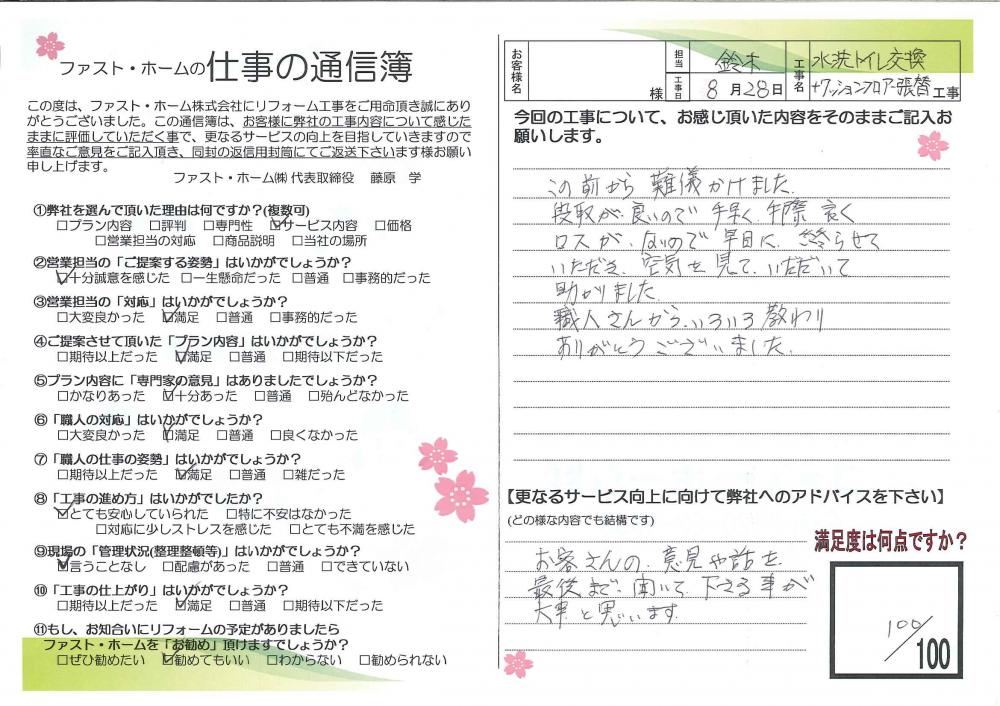 ファスト・ホームの仕事の通信簿
この度は、ファスト・ホーム株式会社にリフォーム工事をご用命頂き誠にあり
がとうございました。この通信簿は、お客様に弊社の工事内容について感じた
ままに評価していただく事で、更なるサービスの向上を目指していきますので
率直なご意見をご記入頂き、同封の返信用封筒にてご返送下さいます様お願い
申し上げます。
ファスト・ホーム㈱ 代表取締役 藤原 学
①弊社を選んで頂いた理由は何ですか？(複数可)
□プラン内容 □評判 □専門性 ☑サービス内容 □価格
□営業担当の対応 □商品説明 □当社の場所
②営業担当の「ご提案する姿勢」はいかがでしょうか？
☑十分誠意を感じた □一生懸命だった □普通 □事務的だった
③営業担当の「対応」はいかがでしょうか？
□大変良かった ☑満足 □普通 □事務的だった
④ご提案させて頂いた「プラン内容」はいかがでしょうか？
□期待以上だった ☑満足 □普通 □期待以下だった
⑤プラン内容に「専門家の意見」はありましたでしょうか？
□かなりあった ☑十分あった □普通 □殆んどなかった
⑥「職人の対応」はいかがでしょうか？
□大変良かった ☑満足 □普通 □良くなかった
⑦「職人の仕事の姿勢」はいかがでしょうか？
□期待以上だった ☑満足 □普通 □雑だった
⑧「工事の進め方」はいかがでしたか？
☑とても安心していられた □特に不安はなかった
□対応に少しストレスを感じた □とても不満を感じた
⑨現場の「管理状況(整理整頓等)」はいかがでしょうか？
☑言うことなし □配慮があった □普通 □できていない
⑩「工事の仕上がり」はいかがでしょうか？
□期待以上だった ☑満足 □普通 □期待以下だった
⑪もし、お知合いにリフォームの予定がありましたら
ファスト・ホームを「お勧め」頂けますでしょうか？
□ぜひ勧めたい ☑勧めてもいい □わからない □勧められない
お客様名 様 担当 鈴木 工事日 8月28日 工事名 水洗トイレ交換
+クッションフロアー張替工事
今回の工事について、お感じ頂いた内容をそのままご記入お
願いします。
この前から 難儀かけました.
段取が、良いので 手早く、手際 良く
ロスが、ないので 早目に、終らせて
いただき、空気を見て、いただいて
助かりました.
職人さんから、いろいろ教わり
ありがとうございました.
【更なるサービス向上に向けて弊社へのアドバイスを下さい】
(どの様な内容でも結構です)
満足度は何点ですか？
お客さんの、意見や話を
最後まで、聞いて、下さる事が
大事と思います.
100/100